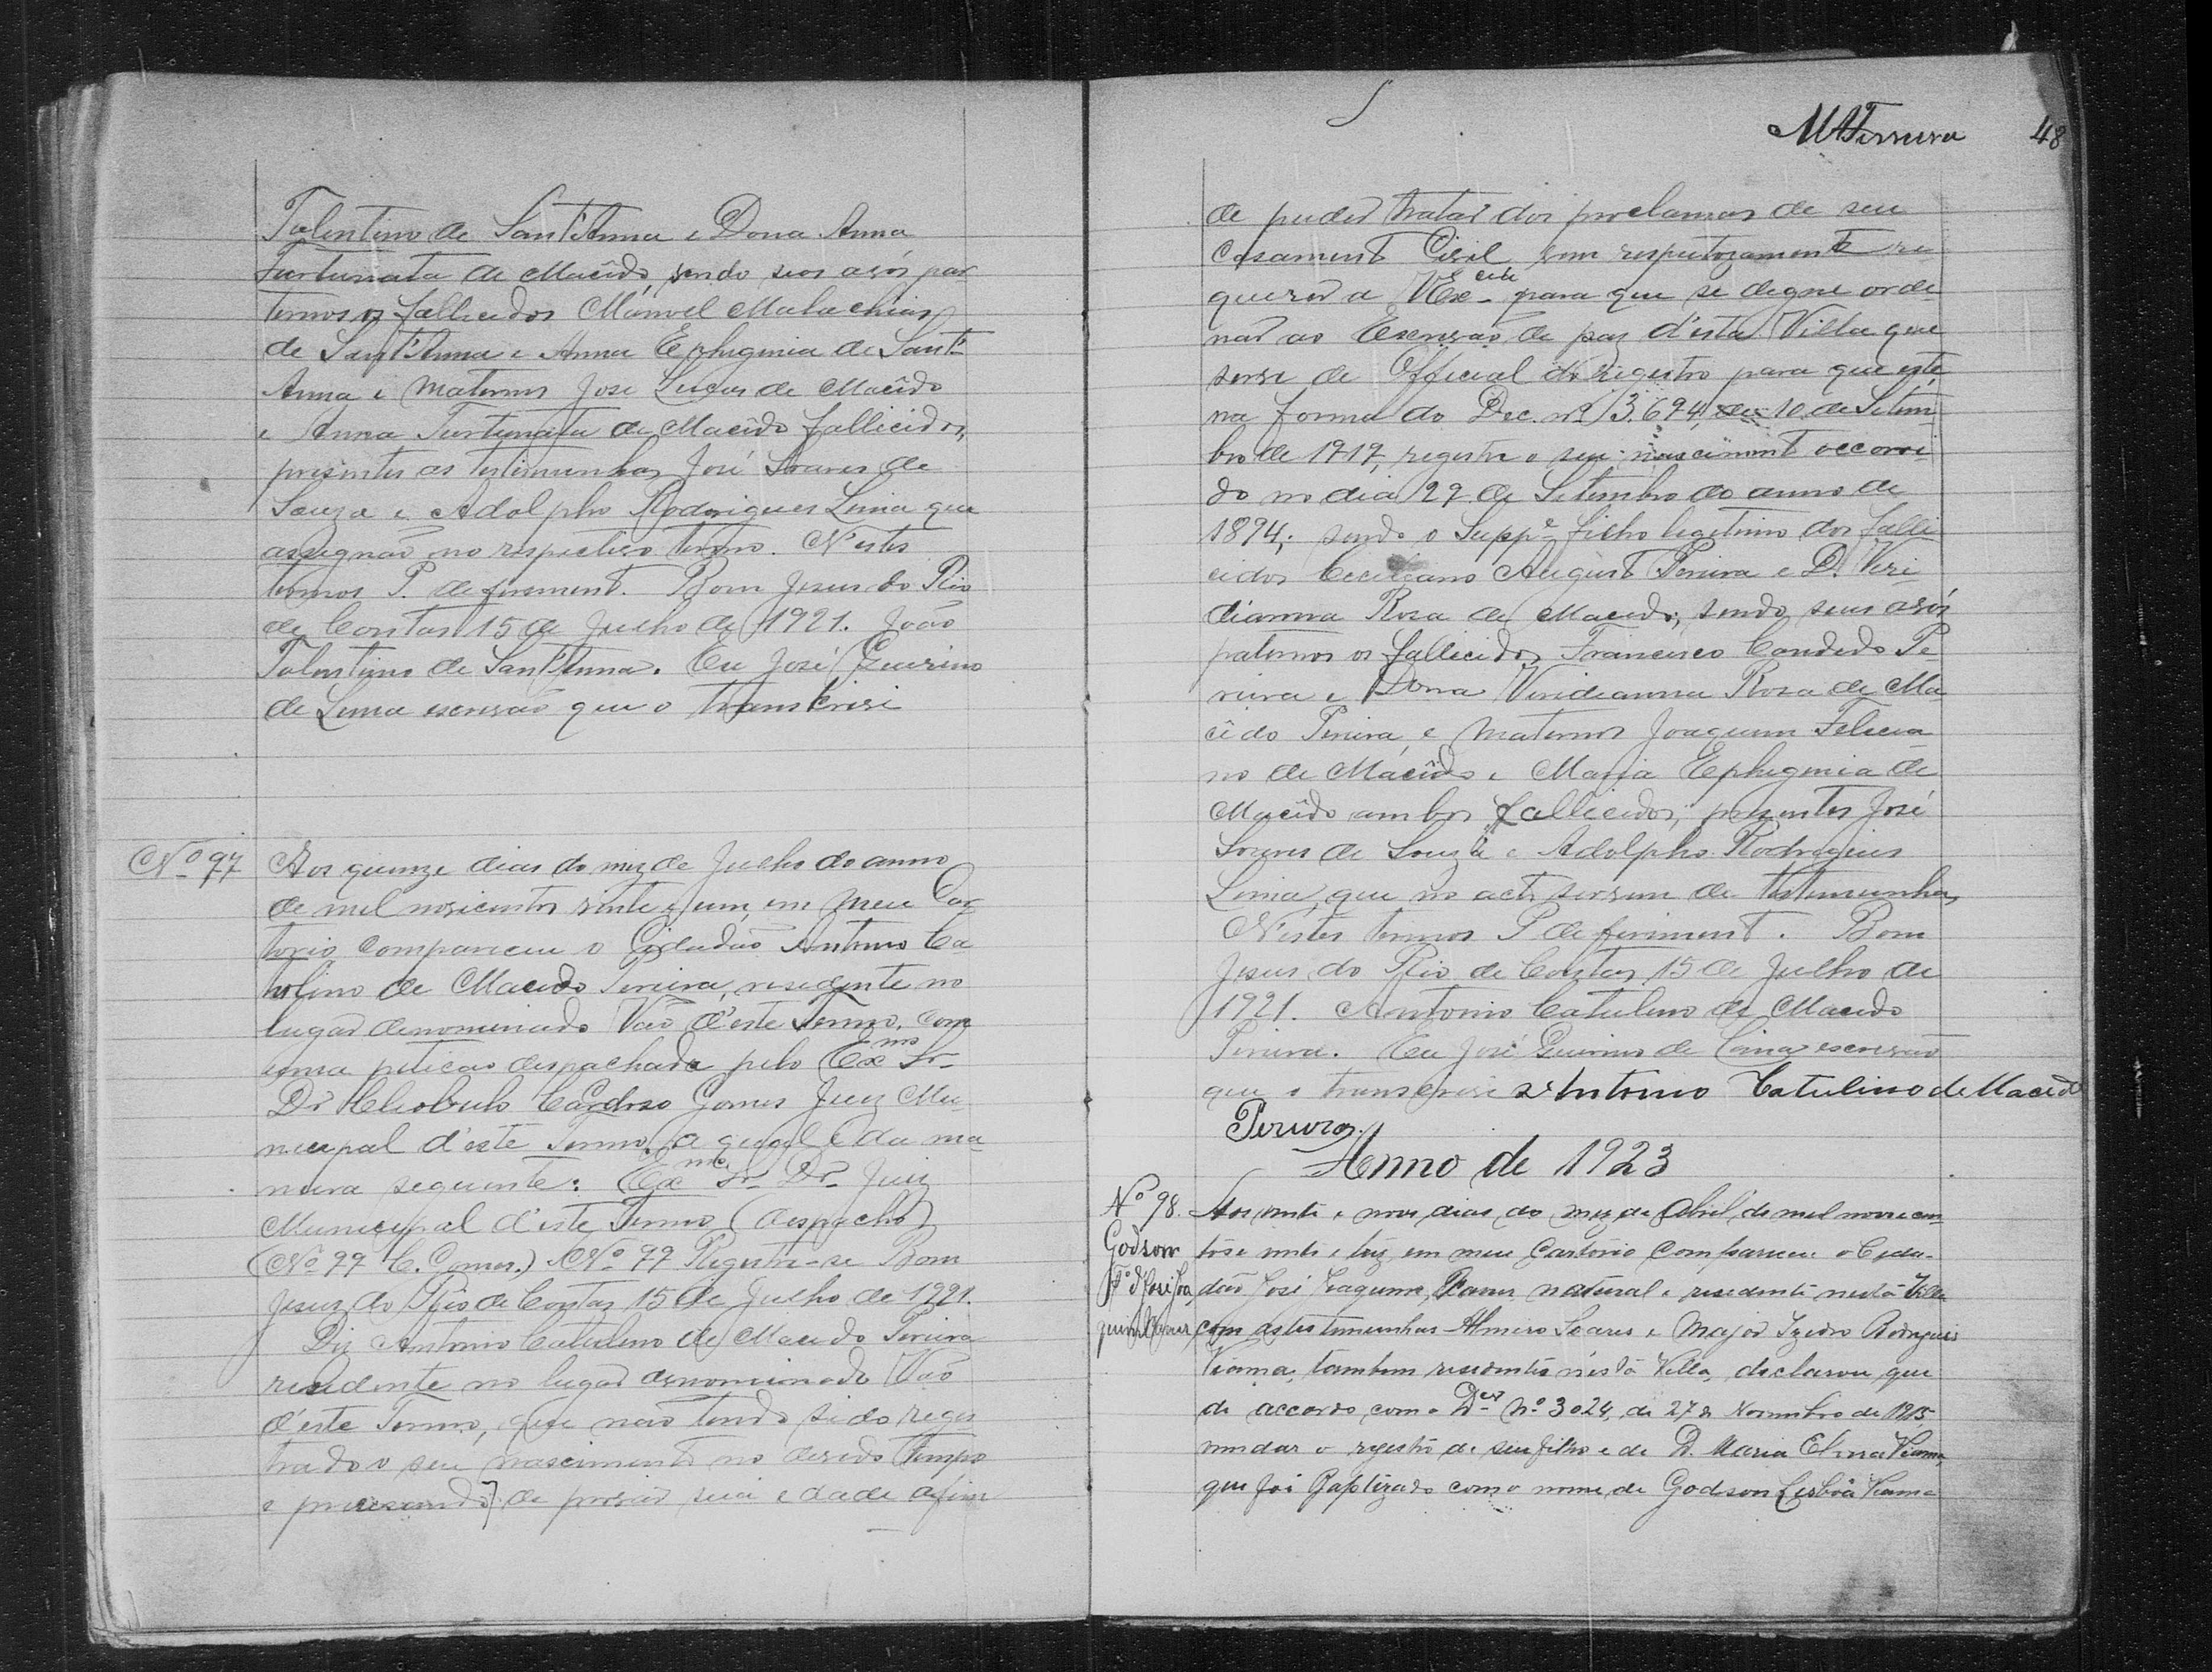 Tolentino de Sant'Anna e Dona Anna
Furtunata de Macêdo, sendo seos avós pa-
ternos os fallecidos Manoel Malachias
de Sant'Anna e Anna Ephigenia de Sant'-
Anna e maternos José Lucas de Macêdo
e Anna Furtunata de Macêdo fallicidos,
presentes as testimunhas José Soares de
Souza e Adolpho Rodrigues Lima que
assignão no respectivo termo. N'estes
termos P. deferiment. Bom Jesus do Rio
de Contas 15 de Julho de 1921. João
Tolentino de Sant'Anna. Eu José Guirino
de Lima escrivão que o transkrivi
Nº 97
Aos quinze dias do mez de Julho do anno
de mil novicentos vinte e um, em meu Car
torio compareceu o Cidadão Antonio Ca-
tolino de Macedo Pereira, residente no
lugar denominado Vão d'este Termo, com
uma petição despachada pelo Exmo Sr
Dr Cleobulo Cardozo Gomes Juiz Mu-
nicipal d'este Termo, a qual é da ma
neira seguinte: Exmo Sr. Dr. Juiz
Municipal d'este Termo (despacho)
(Nº 97 C. Gomes.) Nº 97 Registre-se Bom
Jesus do Rio de Contas 15 de Julho de 1921.
Diz Antonio Catulino de Macedo Pereira
residente no lugar denominado Vão
d'este Termo, que não tendo sido regis
trado o seu nascimento no devido tempo
e precisando de provar sua edade afim
MAFerreira 48
de puder tratar dos proclamas de seu
casament Civil, vem respeitosamente re
querer a VExcia para que se digne orde
nar ao Escrivão de paz d'esta Villa que
serve de Official do registro para que este,
na forma do Dec. nº 3.694, de 10 de Setem
bro de 1919, registre o seu nasciment occorri
do no dia 29 de Setembro do anno de
1894; sendo o Suppe filho legitimo dos falli
cidos Ceciliano August Pereira e D. Viri
dianna Rosa de Macedo; sendo seus avós
paternos os fallicidos Francisco Candido Pe-
reira e Dona Virideanna Rosa de Ma-
cêdo Pereira, e maternos Joaquim Felicia
no de Macêdo e Maria Ephigenia de
Macêdo ambos fallicidos; presentes José
Soares de Souza e Adolpho Rodrigues
Lima, que no acto servem de testimunhas,
N'estes termos P deferiment. Bom
Jesus do Rio de Contas 15 de Julho de
1921. Antonio Catulino de Macedo
Pereira. Eu José Guirino de Lima escrivão
que o transcrivi Antonio Catulino de Macedo
Pereira.
Anno de 1923
Nº 98.
Godson
Fº de José Joa
quim
Aos vinte e nove dias do mez de Abril de mil novecen
tos e vinte e trez em meu Cartorio compareceu o Cida-
dão José Joaquim, natural e residente nesta Villa
com as testemunhas Almiro Soares e Major Izidro Rodrigues
Vianna, tambem residentes nésta Villa, declarou que
de accordo com o Dec nº 3024, de 27 de Novembro de 1915
mandar o registo de seu filho e de D. Maria Elvira Vianna,
que foi Baptizado com o nome de Godson Lisbôa Vianna